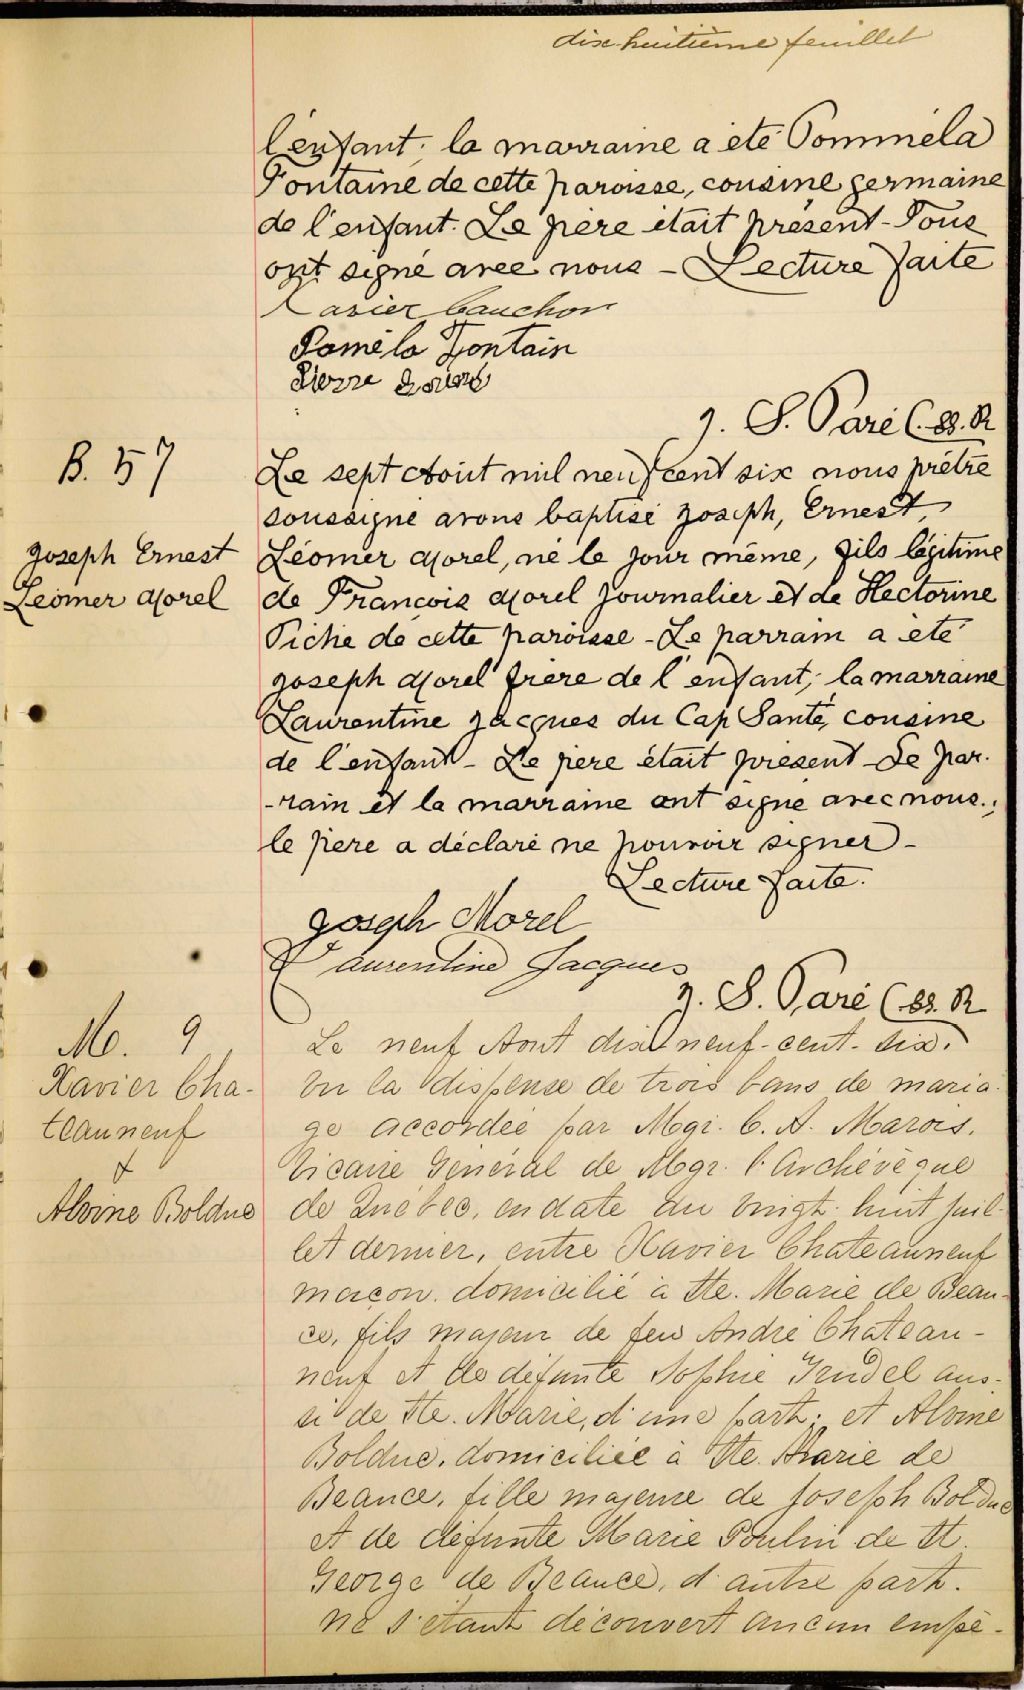 dix-huitième feuillet
l'enfant; la marraine a été Pomméla
Fontaine de cette paroisse, cousine germaine
de l'enfant. Le père était présent - Tous
ont signé avec nous - Lecture faite
Xavier Cauchon
Paméla Fontain
Pierre
J. S. Paré C.SS.R
B. 57
Joseph Ernest
Léomer Morel
Le sept Août mil neuf cent six nous prêtre
soussigné avons baptisé Joseph, Ernest,
Léomer Morel, né le jour même, fils légitime
de François Morel Journalier et de Hectorine
Piché de cette paroisse - Le parrain a été
Joseph Morel frère de l'enfant; la marraine
Laurentine Jacques du Cap Santé, cousine
de l'enfant - Le père était présent - Le par-
-rain et la marraine ont signé avec nous.;
le père a déclaré ne pouvoir signer -
Lecture faite.
Joseph Morel
Laurentine Jacques
J. S. Paré C.SS.R
M. 9
Xavier Cha-
teauneuf
&
Alvine Bolduc
Le neuf Août dix-neuf-cent-six.
Vu la dispense de trois bans de maria-
ge accordée par Mgr. C. A. Marois,
Vicaire Général de Mgr. l'Archévêque
de Québec, en date du vingt-huit juil-
let dernier, entre Xavier Chateauneuf
maçon, domicilié à Ste. Marie de Beau-
ce, fils majeur de feu André Chateau-
neuf et de défunte Sophie Grudel aus-
si de Ste. Marie, d'une part; et Alvine
Bolduc, domiciliée à Ste. Marie de
Beauce, fille majeure de Joseph Bolduc
et de défunte Marie Poulin de St.
George de Beauce, d'autre part.
ne s'étant découvert aucun empê-